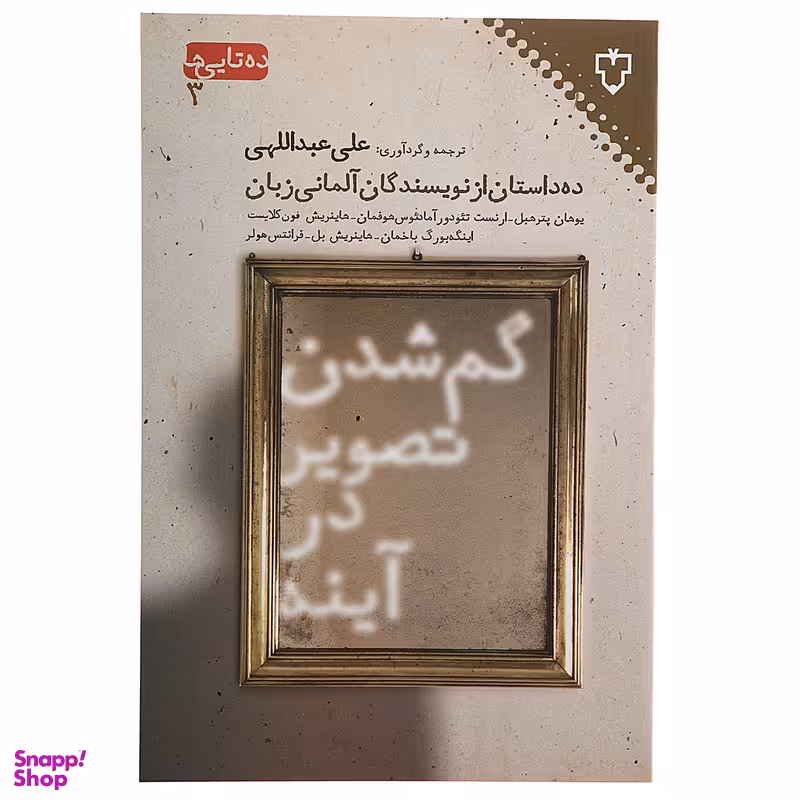 ده‌تایی‌ها
۳
ترجمه و گردآوری: علی عبداللهی
ده داستان از نویسندگان آلمانی زبان
یوهان پتر هبل - ارنست تئودور آمادئوس هوفمان - هاینریش فون کلایست
اینگه‌بورگ باخمان - هاینریش بل - فرانتس هولر
گم شدن
تصویر
در
آینه
Snapp!
Shop